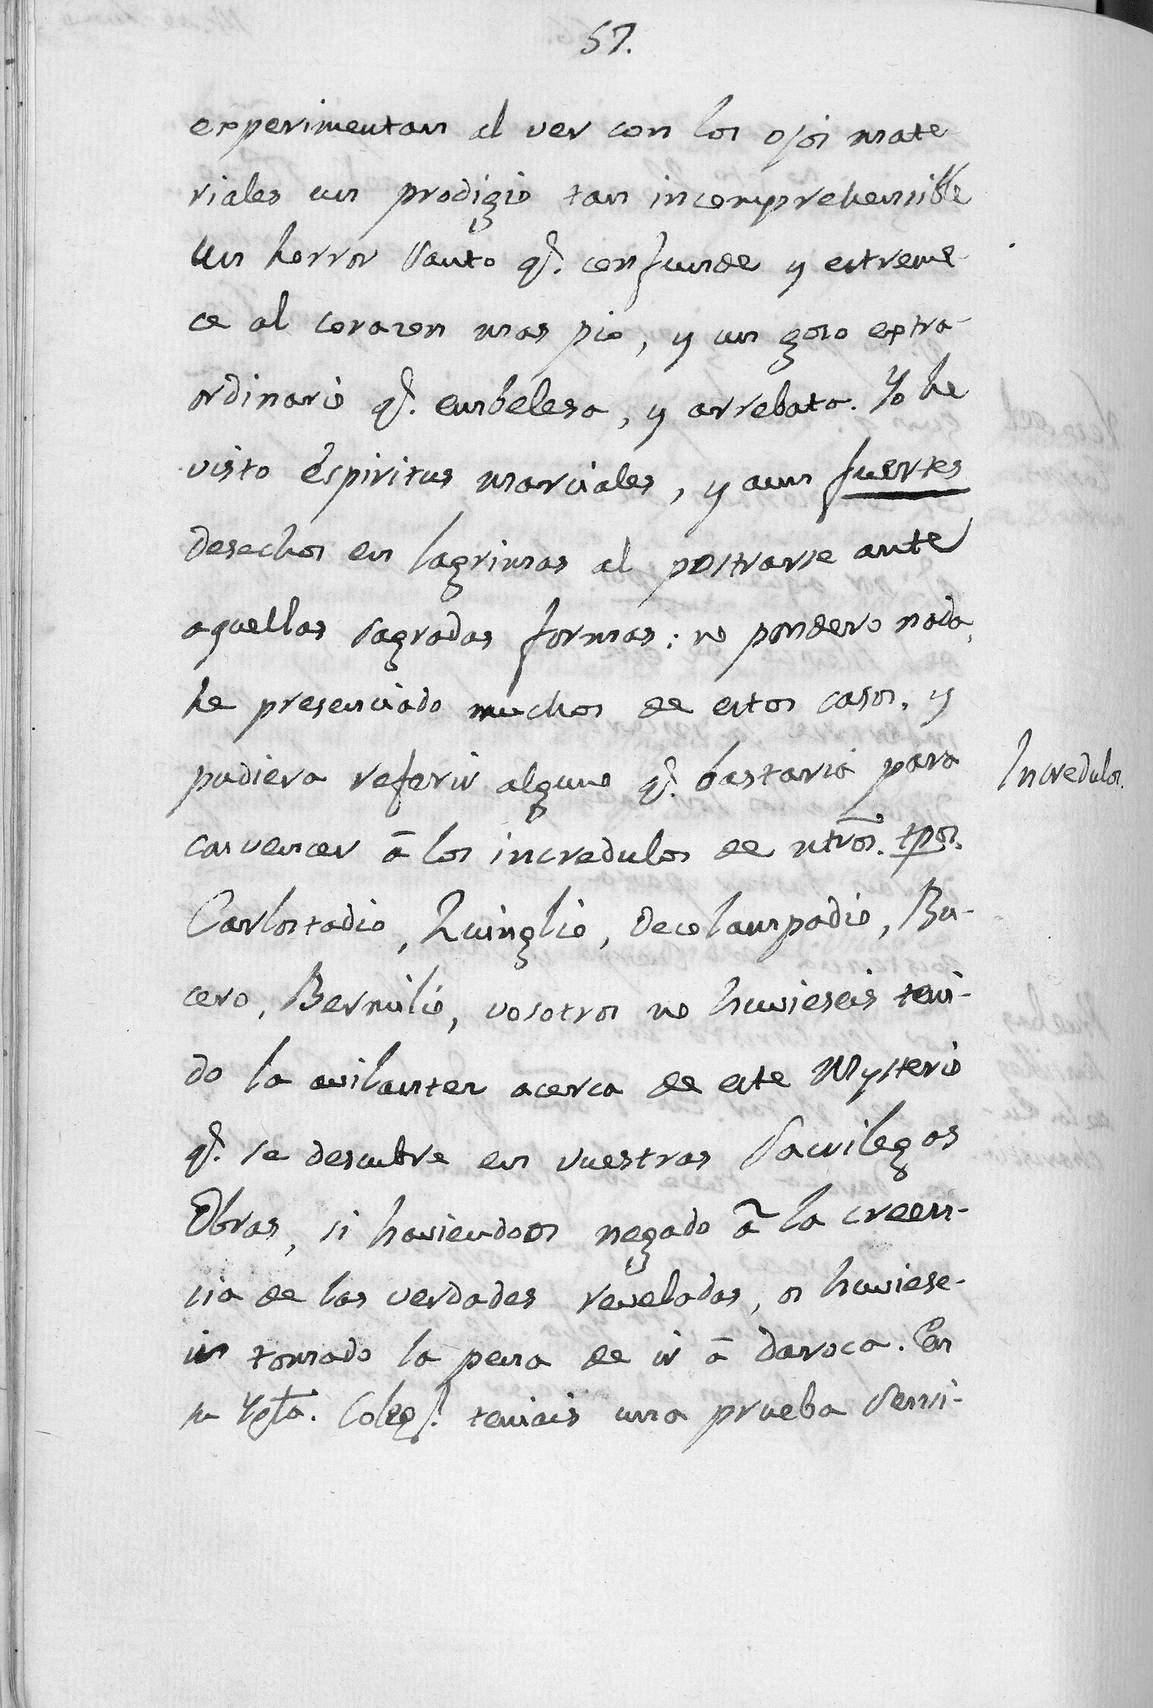 57.
experimentan al ver con los ojos mate
riales un prodigio tan incomprehensible
Un horror Santo q.e confunde y estreme-
ce al corazon mas pio, y un gozo extra-
ordinario q.e embelesa, y arrebata. Yo he
visto Espiritus marciales, y aun fuertes
desechos en lagrimas al postrarse ante
aquellas sagradas formas: no pondero nada,
he presenciado muchos de estos casos, y
pudiera referir alguno q.e bastaria para
convencer â los incredulos de ntrôs. tpos.
Incredulos.
Carlostadio, Zuinglio, Oecolampadio, Bu-
cero, Bermilio, vosotros no huvieseis teni-
do la avilantez acerca de este Mysterio
q.e se descubre en vuestras Sacrilegas
Obras, si haviendoos negado â la creen-
cia de las verdades reveladas, os huviese-
is tomado la pena de ir â Daroca. En
su Ygla. Coleg.l teniais una prueba Sensi-